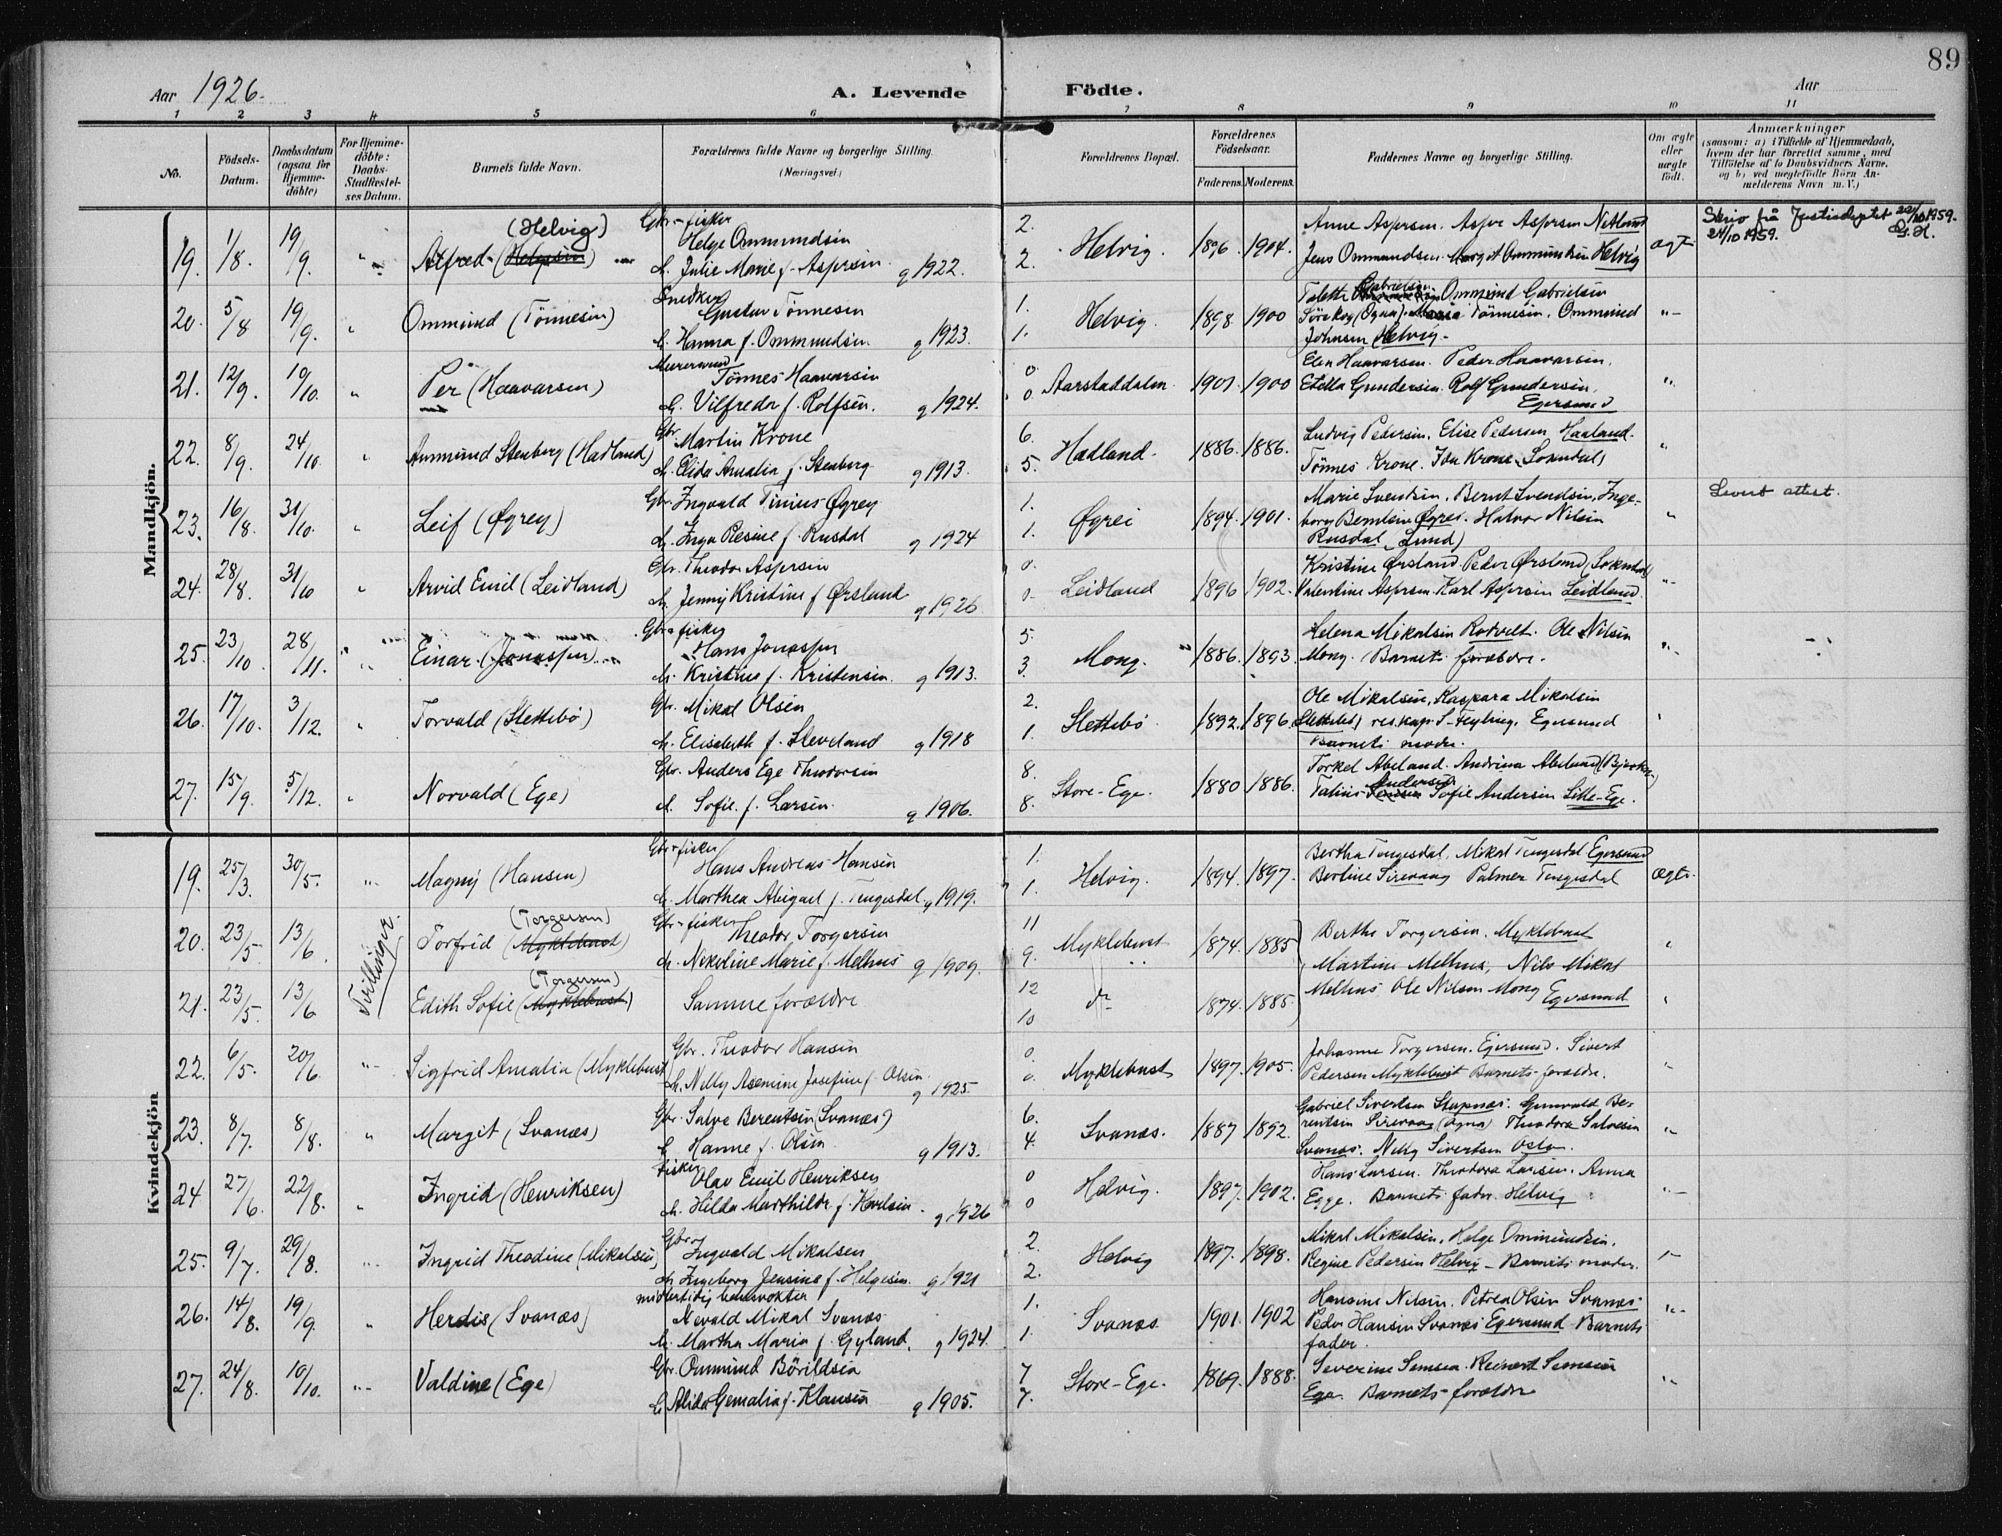 89
Aar 1926. A. Levende Födte. Aar
1 2 3 4 5 6 7 8 9 10 11
No. Födsels-Datum. Daabsdatum (ogsaa for Hjemme-döbte) For Hjemme-döbte: Daabs-Stadfæstel-ses Datum. Barnets fulde Navn. Forældrenes fulde Navne og borgerlige Stilling. (Næringsvei) Forældrenes Bopæl. Forældrenes Födselsaar. Faderens. Moderens. Faddernes Navne og borgerlige Stilling. Om ægte eller uægte födt. Anmærkninger (saasom: a) i Tilfælde af Hjemmedaab, hvem der har forrettet samme, med Tilföielse af to Daabsvidners Navne, og b) ved uegtefödte Börn An-melderens Navn m. V.)
Mandkjön.
19. 1/8. 19/9. Alfred (Helgsen) (Helvig) Gbr-fisker Helge Ommundsen h. Julie Marie f. Aspersen g 1922. 2. 2. Helvig. 1896 1904. Anne Aspersen. Asper Aspersen Netland Jens Ommundsen. Margit Ommundsen Helvig ægt Skriv frå Justisdeptet 22/10 1959. 24/10 1959.
20. 5/8 19/9. Ommund (Tönnesen) Snedker Gustav Tönnesen h. Hanna f. Ommundsen g 1923. 1. 1. Helvig. 1898. 1900 Gabrielsen Ommund Gabrielsen Sirevaag (Ogna). Tönnesen. Ommund Johnsen Helvig.
21. 12/9. 10/10. Per (Haavarsen) Tönnes Haavarsen h. Vilfreda f. Rolfsen. g 1924. 0 0. Aarstaddalen. 1901. 1900 Elen Haavarsen. Peder Haavarsen. Gundersen. Rolf Gundersen. Egersund
22. 8/9. 24/10. Ammund Stenberg (Hadland) Gbr. Martin Krone h. Elida Amalia f. Stenberg g 1913. 6. 5. Hadland. 1886. 1886. Ludvig Pedersen. Elise Pedersen Haaland. Tönnes Krone. Ida Krone (Sokndal)
23. 16/8. 31/10. Leif (Øgrey) Gbr. Ingvald Tinius Øgrey h. Inga Resine f. Rusdal g 1924 1. 1. Øgrei 1894. 1901. Marie Svendsen. Bernt Svendsen, Inge-borg Bentine Øgrei. Halvor Nilsen Rusdal (Lund) Levert attest.
24. 28/8. 31/10 Arvid Emil (Leidland) Gbr. Theodor Aspersen h. Jenny Kristine f Ørsland g 1926 0. 0. Leidland 1896 1902. Kristine Ørsland Peder Ørsland (Sokndal) Valentine Aspersen Karl Aspersen Leidland.
25. 23/10. 28/11. Einar (Jonassen) Gbr-fisker Hans Jonassen h. Kristine f. Kristensen. g 1913. 5. 3. Mong. 1886. 1893 Helena Mikalsen Rodvelt. Ole Nilsen Mong. Barnets forældre.
26. 17/10. 3/12. Torvald (Slettebö) Gbr. Mikal Olsen h. Elisabeth f. Sleveland g 1918 2. 1. Slettebö. 1892. 1896. Ole Mikalsen, Kaspara Mikalsen Slettebö, S. Feyling, Egersund Barnets moder.
27. 15/9. 5/12. Norvald (Ege) Gbr. Anders Ege Theodorsen h. Sofie f. Larsen. g 1906. 8. 8. Store-Ege. 1880 1886. Torkel Abeland. Andrina Abeland (Bjerkr.) Talius Andersen Sofie Andersen Lille-Ege.
Kvindekjön
19. 25/3. 30/5. Magny (Hansen) Gbr-fisker Hans Andreas Hansen h. Marthea Abigael f. Tengesdal g 1919. 1. 1. Helvig. 1894. 1897. Bertha Tengesdal, Mikal Tengesdal Egersund Bertine Sirevaag Palmer Tengesdal ægte.
20. 23/5. 13/6. Tvillinger. Torfrid (Myklebust) (Torgersen) Gbr-fisker Theodor Torgersen h. Nikoline Marie f. Melhus g 1909. 11 9. Myklebust 1874. 1885 Berthe Torgersen. Myklebust Martine Melhus, Nils Mikal
21. 23/5. 13/6 Edith Sofie (Myklebust) (Torgersen) Samme forældre 12 10 1874. 1885. Melhus Ole Nilsen Mong Egersund
22. 6/5. 20/6 Sigfrid Amalia (Myklebust Gbr. Theodor Hansen h. Nelly Asemine Josefine f. Olsen g 1925. 0. 0. Myklebust 1897. 1905. Johanne Torgersen. Egersund. Sivert Pedersen Myklebust Barnets forældre.
23. 8/7. 8/8. Margit (Svanæs) Gbr. Salve Berentsen (Svanæs) h. Hanne f. Olsen g 1913. 6. 4. Svanæs. 1887 1892. Gabriel Sivertsen Stapnæs. Gunvald Be-rentsen Sirevaag (Ogna) Theodora Salvesen Svanæs. Nelly Sivertsen Oslo.
24 27/6. 22/8. Ingrid (Henriksen) Fisker Olav Emil Henriksen h. Hilda Marthilde f. Karlsen. g 1926 0 0 Helvig. 1897. 1902. Hans Larsen. Theodora Larsen. Anna Egge. Barnets fader Helvig
25. 9/7. 29/8. Ingrid Theodine (Mikalsen) Gbr. Ingvald Mikalsen h. Ingeborg Jensine f. Helgesen. g 1921 2. 2. Helvig 1897. 1898. Mikal Mikalsen, Helge Ommundsen, Regine Pedersen Helvig - Barnets moder.
26. 14/8. 19/9. Herdis (Svanæs) midlertidig banevokter Nevald Mikal Svanæs h. Martha Maria f. Gyland, g 1924. 1. 1. Svanæs 1901. 1902 Hansine Nilsen. Petrea Olsen Svanæs Peder Hansen Svanæs Egersund Barnets fader.
27. 24/8. 10/10. Valdine (Ege) Gbr. Ommund Böridsen h. Alida f. Klausen g 1905. 7 7. Store-Ege. 1869. 1888. Severine Simsen. Reinert Simsen Ege. Barnets forældre